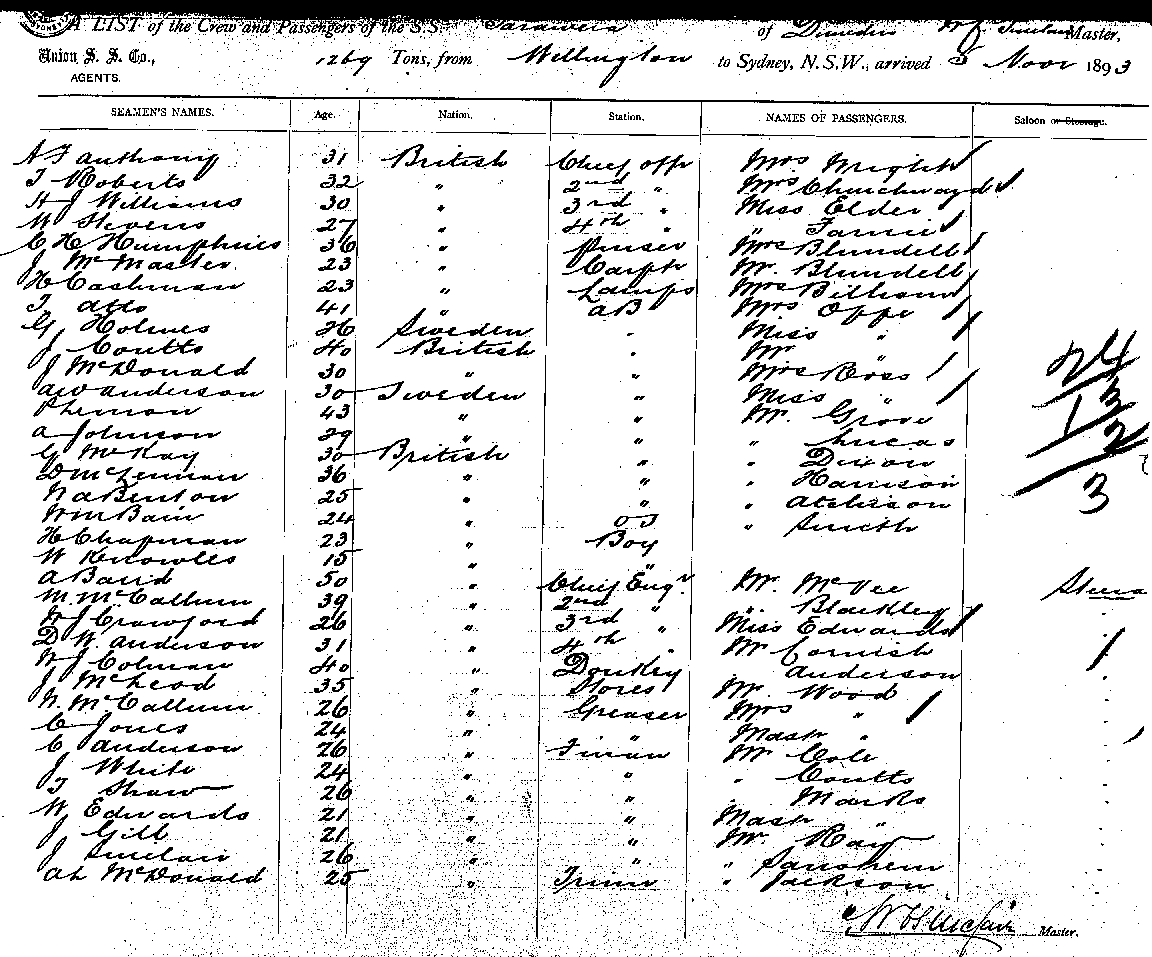 A LIST of the Crew and Passengers of the S.S. Tarawera of Dunedin W J Sinclair Master,
Union S. S. Co., 1269 Tons, from Wellington to Sydney, N.S.W., arrived 5 Novr 1893
AGENTS.
SEAMEN'S NAMES. Age. Nation. Station. NAMES OF PASSENGERS. Saloon or Steerage.
A F Anthony 31 British Chief offr Mrs Wright
T Roberts 32 " 2nd " Mrs Churchward
H J Williams 30 " 3rd " Miss Elder
W Stevens 27 " 4th "
C H Humphries 36 " Purser Mrs Blundell
J McMaster 23 " Carptr Mr. Blundell
H Cashman 23 " Lamps Mrs
T Atto 41 " AB Mrs Offe
G Holmes 26 Sweden " Miss "
J Coutts 40 British " Mr
J McDonald 30 " " Mrs Ross
AW Anderson 30 Sweden " Miss "
43 " " Mr. Grove
A Johnson 29 " " " Lucas
G McKay 30 British " " Dixon
D McLennan 36 " " " Harrison
N A Benton 25 " " " Atchison
Wm Bain 24 " OS " Smith
H Chapman 23 " Boy
W Knowles 15 " "
A Baird 50 " Chief Engr Mr. McVee Steera
M. McCallum 39 " 2nd " " Blackley
W J Crawford 26 " 3rd " Miss Edwards
D W. Anderson 31 " 4th " Mr Cornish
W J Colman 40 " Donkey Anderson
J McLeod 35 " Stores Mr. Wood
N. McCallum 26 " Greaser Mrs "
C Jones 24 " " Mastr "
C Anderson 26 " Firman Mr Cole
J White 24 " " " Coutts
T Shaw 26 " " Marks
W Edwards 21 " " Mastr "
J Gill 21 " " Mr. Ray
J Sinclair 26 " "
Al McDonald 25 " Trimr " Jackson
24
3
1 2
3
W J Sinclair Master.